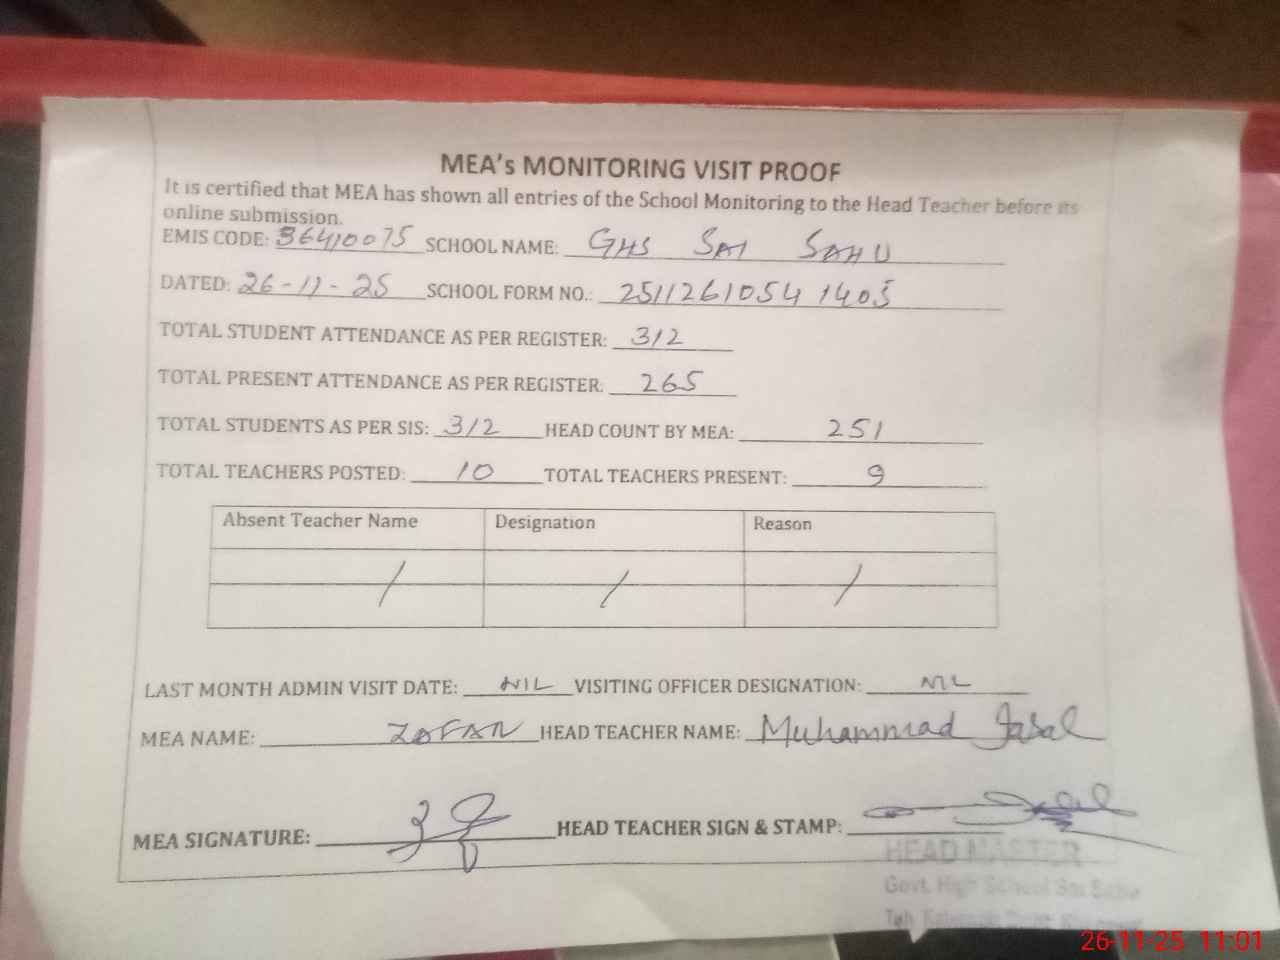 MEA's MONITORING VISIT PROOF
It is certified that MEA has shown all entries of the School Monitoring to the Head Teacher before its
online submission.
EMIS CODE: 36410075 SCHOOL NAME: GHS SAI SAHU
DATED: 26-11-25 SCHOOL FORM NO.: 25112610541405
TOTAL STUDENT ATTENDANCE AS PER REGISTER: 312
TOTAL PRESENT ATTENDANCE AS PER REGISTER: 265
TOTAL STUDENTS AS PER SIS: 312 HEAD COUNT BY MEA: 251
TOTAL TEACHERS POSTED: 10 TOTAL TEACHERS PRESENT: 9
Absent Teacher Name Designation Reason
/ / /
LAST MONTH ADMIN VISIT DATE: NIL VISITING OFFICER DESIGNATION: NIL
MEA NAME: HEAD TEACHER NAME: Muhammad
MEA SIGNATURE: HEAD TEACHER SIGN & STAMP:
HEAD MASTER
Govt. High School Sai
Teh.
26-11-25 11:01